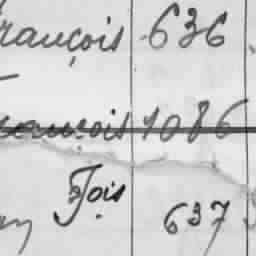 rançois 636
rançois 1086
Fois
637